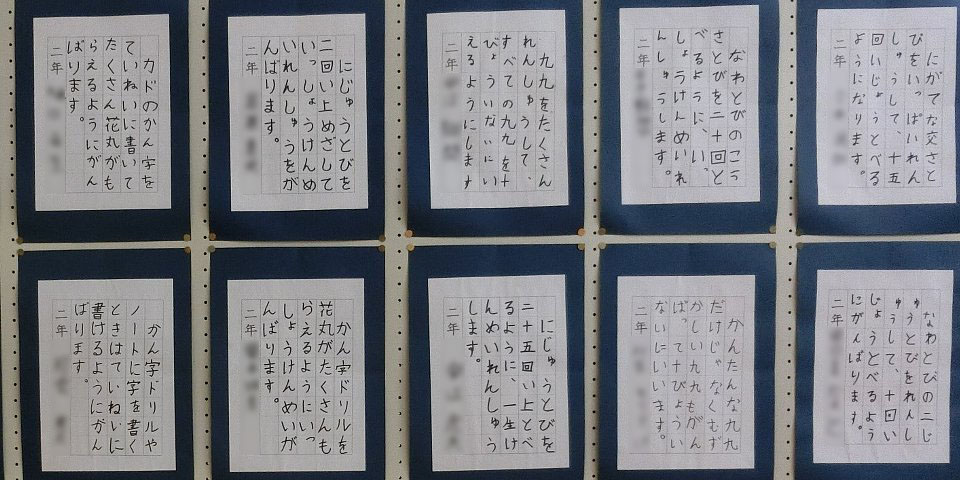 にがてな交さと
びをいっぱいれん
しゅうして、十五
回いじょうとべる
ようになります。
二年
なわとびのこう
さとびを二十回と
べるように、いっ
しょうけんめいれ
んしゅうします。
二年
九九をたくさん
れんしゅうして、
すべての九九を十
びょういないにい
えるようにします
二年
にじゅうとびを
二回い上めざして
いっしょうけんめ
いれんしゅうをが
んばります。
二年
カドのかん字を
ていねいに書いて
たくさん花丸がも
らえるようにがん
ばります。
二年
なわとびの二じ
ゅうとびをれんし
ゅうして、十回い
じょうとべるよう
にがんばります。
二年
かんたんな九九
だけじゃなくむず
かしい九九もがん
ばって十びょうい
ないにいいます。
二年
にじゅうとびを
二十五回い上とべ
るように、一生け
んめいれんしゅう
します。
二年
かん字ドリルを
花丸がたくさんも
らえるようにいっ
しょうけんめいが
んばります。
二年
かん字ドリルや
ノートに字を書く
ときはていねいに
書けるようにがん
ばります。
二年